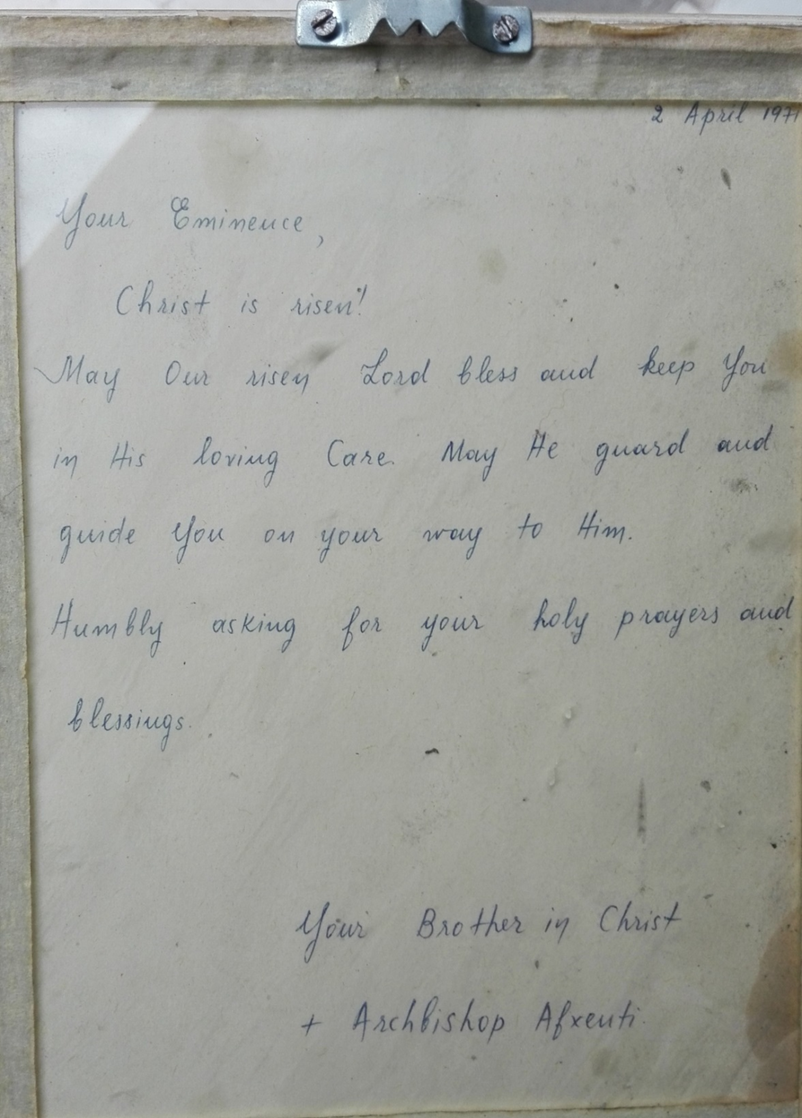 2 April 1971
Your Eminence,
Christ is risen!
May Our risen Lord bless and keep You
in His loving Care. May He guard and
guide You on your way to Him.
Humbly asking for your holy prayers and
blessings.
Your Brother in Christ
+ Archbishop Afxenti